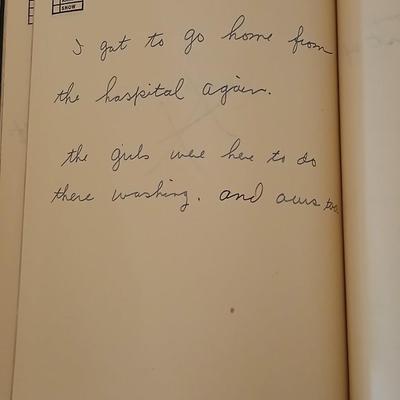 SNOW
I got to go home from
the haspital again.
the girls were here to do
there washing. and ours too.